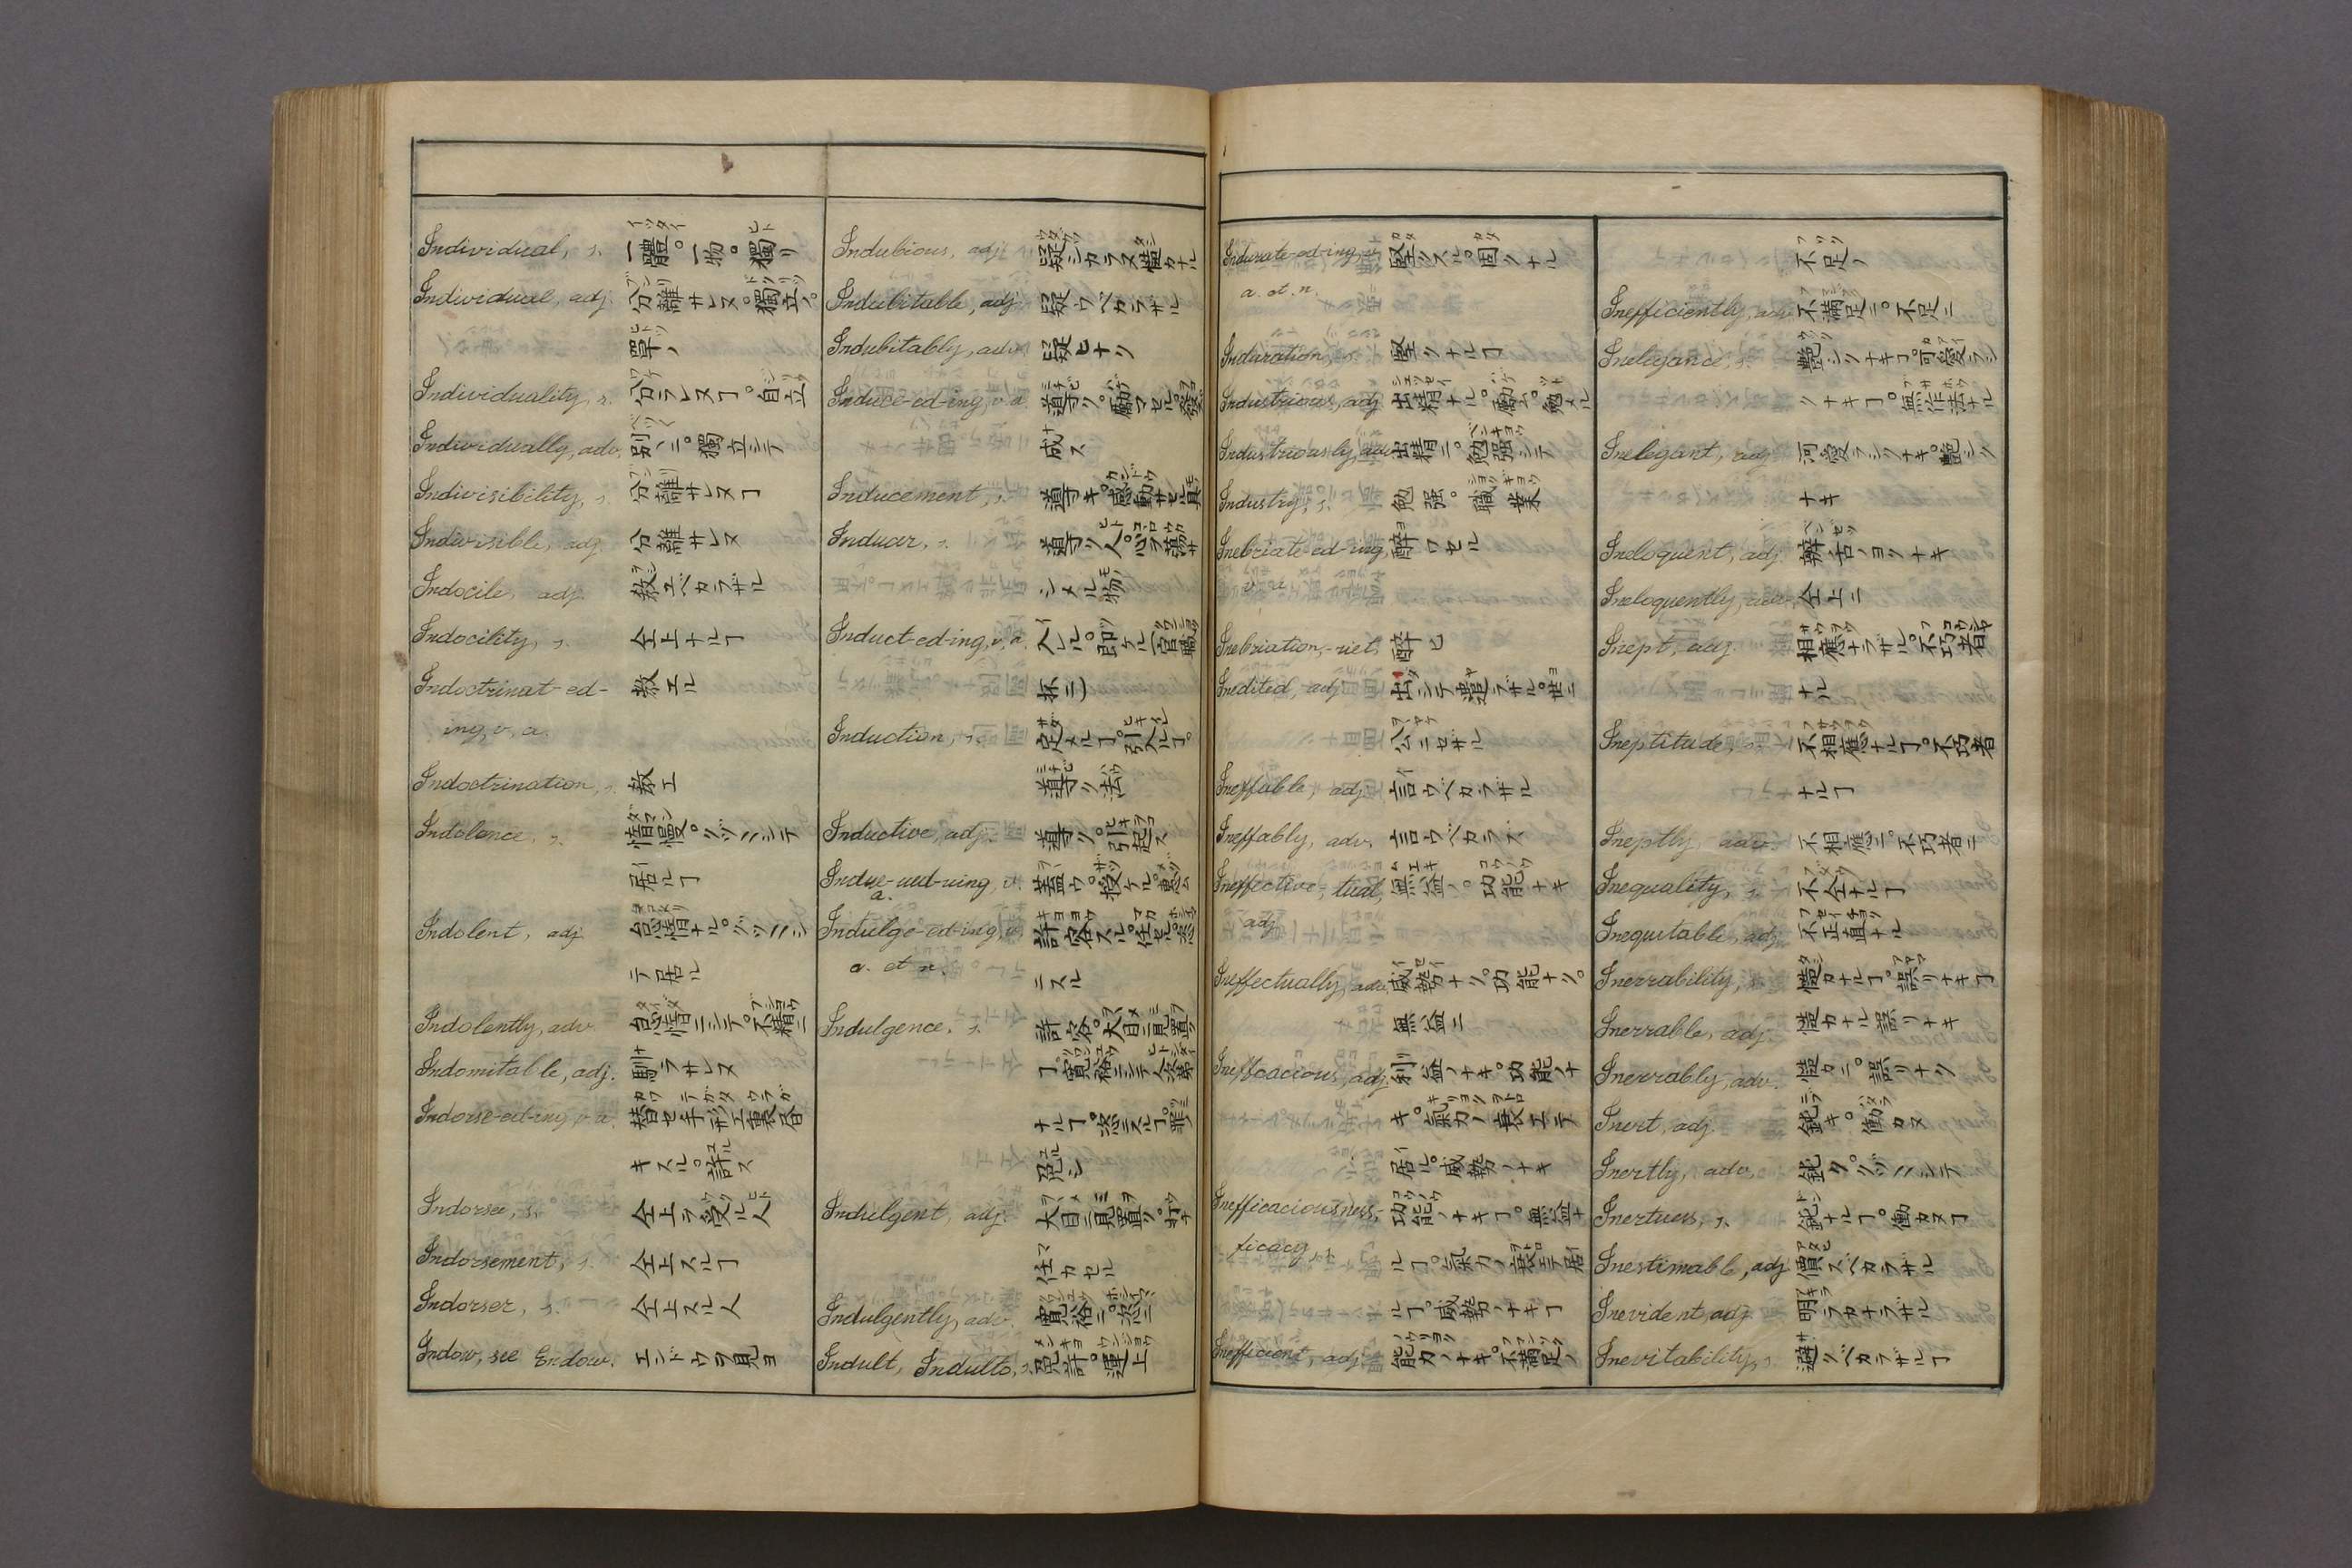 Individual, s. 一體。一物。獨リ
Individual, adj. 分離サレヌ。獨立ノ。
單ノ
Individuality, s. 分ラレヌヿ。自立
Individually, adv. 別々ニ。獨立シテ
Indivisibility, s. 分離サレヌヿ
Indivisible, adj. 分離サレヌ
Indocile, adj. 敎ユベカラザル
Indocility, s. 仝上ナルヿ
Indoctrinat-ed- 敎エル
ing, v. a.
Indoctrination, s. 敎エ
Indolence, s.
居ルヿ
Indolent, adj. 怠惰ナル。
テ居ル
Indolently, adv. 怠惰ニシテ。不精ニ
Indomitable, adj. 馴ラサレヌ
Indorse-ed-ing, v. a. 替セ手形エ裏書
キスル。許ス
Indorsee, s. 仝上ヲ受ル人
Indorsement, s. 仝上スルヿ
Indorser, s. 仝上スル人
Indow, see Endow. エンドウヲ見ヨ
Indubious, adj. 疑シカラズ慥カナル
Indubitable, adj. 疑ウベカラザル
Indubitably, adv. 疑ヒナク
Induce-ed-ing, v. a. 導ク。勵マセル。發
成ス
Inducement, s. 導キ。感動サセル具
Inducer, s. 導ク人。心ヲ蕩サ
シメル物
Induct-ed-ing, v. a. 入レル。即ケル(官職
抔ニ)
Induction, s. 定メルヿ。引入ルヿ。
導ク法
Inductive, adj. 導ク。引起ス
Indue-ued-uing, v. 蓋ウ。授ケル。惠ム
a.
Indulge-ed-ing, v. 許容スル。任セル。恣
a. et n. ニスル
Indulgence, s. 許容。大目ニ見置ク
ヿ。寛裕ニシテ人次第
ナルヿ。恣ニスルヿ。罪
免シ
Indulgent, adj. 大目ニ見置ク。打ウ
任カセル
Indulgently, adv. 寛裕ニ。恣ニ
Indult, Indulto, s. 免許。運上
Indurate-ed-ing, v. 堅クスル。固クナル
a. et. n.
Induration, s. 堅クナルヿ
Industrious, adj. 出精ナル。勵ム。勉メル
Industriously, adv. 出精ニ。勉强シテ
Industry, s. 勉强。職業
Inebriate-ed-ing, 醉ワセル
v. a.
Inebriation,-riet. 醉ヒ
Inedited, adj. 出シテ遣ラザル。世ニ
公ニセザル
Ineffable, adj. 言ウベカラザル
Ineffably, adv. 言ウベカラズ
Ineffective,-tual, 無益ノ。功能ナキ
adj.
Ineffectually, adv. 威勢ナク。功能ナク。
無益ニ
Inefficacious, adj. 利益ノナキ。功能ノナ
キ。氣力ノ衰エテ
居ル。威勢ノナキ
Inefficaciousness,- 功能ノナキヿ。無益ナ
ficacy, s. ルヿ。氣力ノ衰エテ居
ルヿ。威勢ノナキヿ
Inefficient, adj. 能力ノナキ。不滿足ノ
不足ノ
Inefficiently, adv. 不滿足ニ。不足ニ
Inelegance, s. 艶シクナキヿ。可愛ラシ
クナキヿ。無作法ナル
Inelegant, adj. 可愛ラシクナキ。艶シク
ナキ
Ineloquent, adj. 辯舌ノヨクナキ
Ineloquently, adv. 仝上ニ
Inept, adj. 相應ナラザル。不巧者
ナル
Ineptitude, s. 不相應ナルヿ。不巧者
ナルヿ
Ineptly, adv. 不相應ニ。不巧者ニ
Inequality, s. 不仝ナルヿ
Inequitable, adj. 不正直ナル
Inerrability, s. 慥カナルヿ。誤リナキヿ
Inerrable, adj. 慥カナル誤リナキ
Inerrably, adv. 慥カニ。誤リナク
Inert, adj. 鈍キ。働カヌ
Inertly, adv. 鈍ク。
Inertness, s. 鈍ナルヿ。働カヌヿ
Inestimable, adj. 價スベカラザル
Inevident, adj. 明ラカナラザル
Inevitability, s. 避クベカラザルヿ